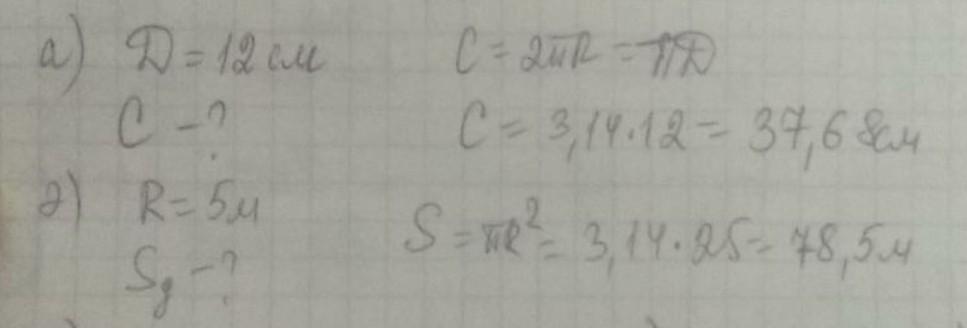 а) D = 12 см C = 2πR = πD
C - ? C = 3,14·12 = 37,68см
д) R = 5м
Sg - ? S = πR² = 3,14·25 = 78,5м